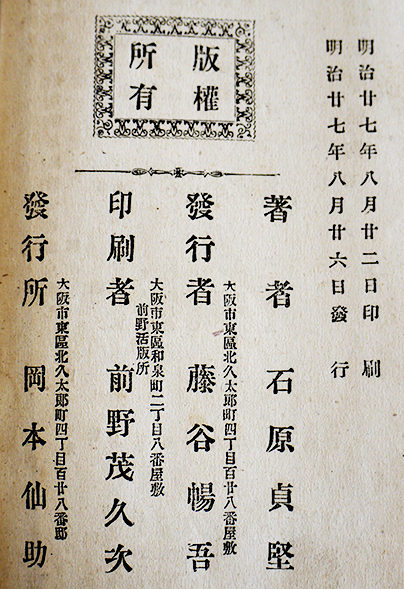 明治廿七年八月廿二日印刷
明治廿七年八月廿六日發行
版權
所有
著者 石原貞堅
大阪市東區北久太郎町四丁目百廿八番屋敷
發行者 藤谷暢吾
大阪市東區和泉町二丁目八番屋敷
前野活版所
印刷者 前野茂久次
大阪市東區北久太郎町四丁目百廿八番邸
發行所 岡本仙助